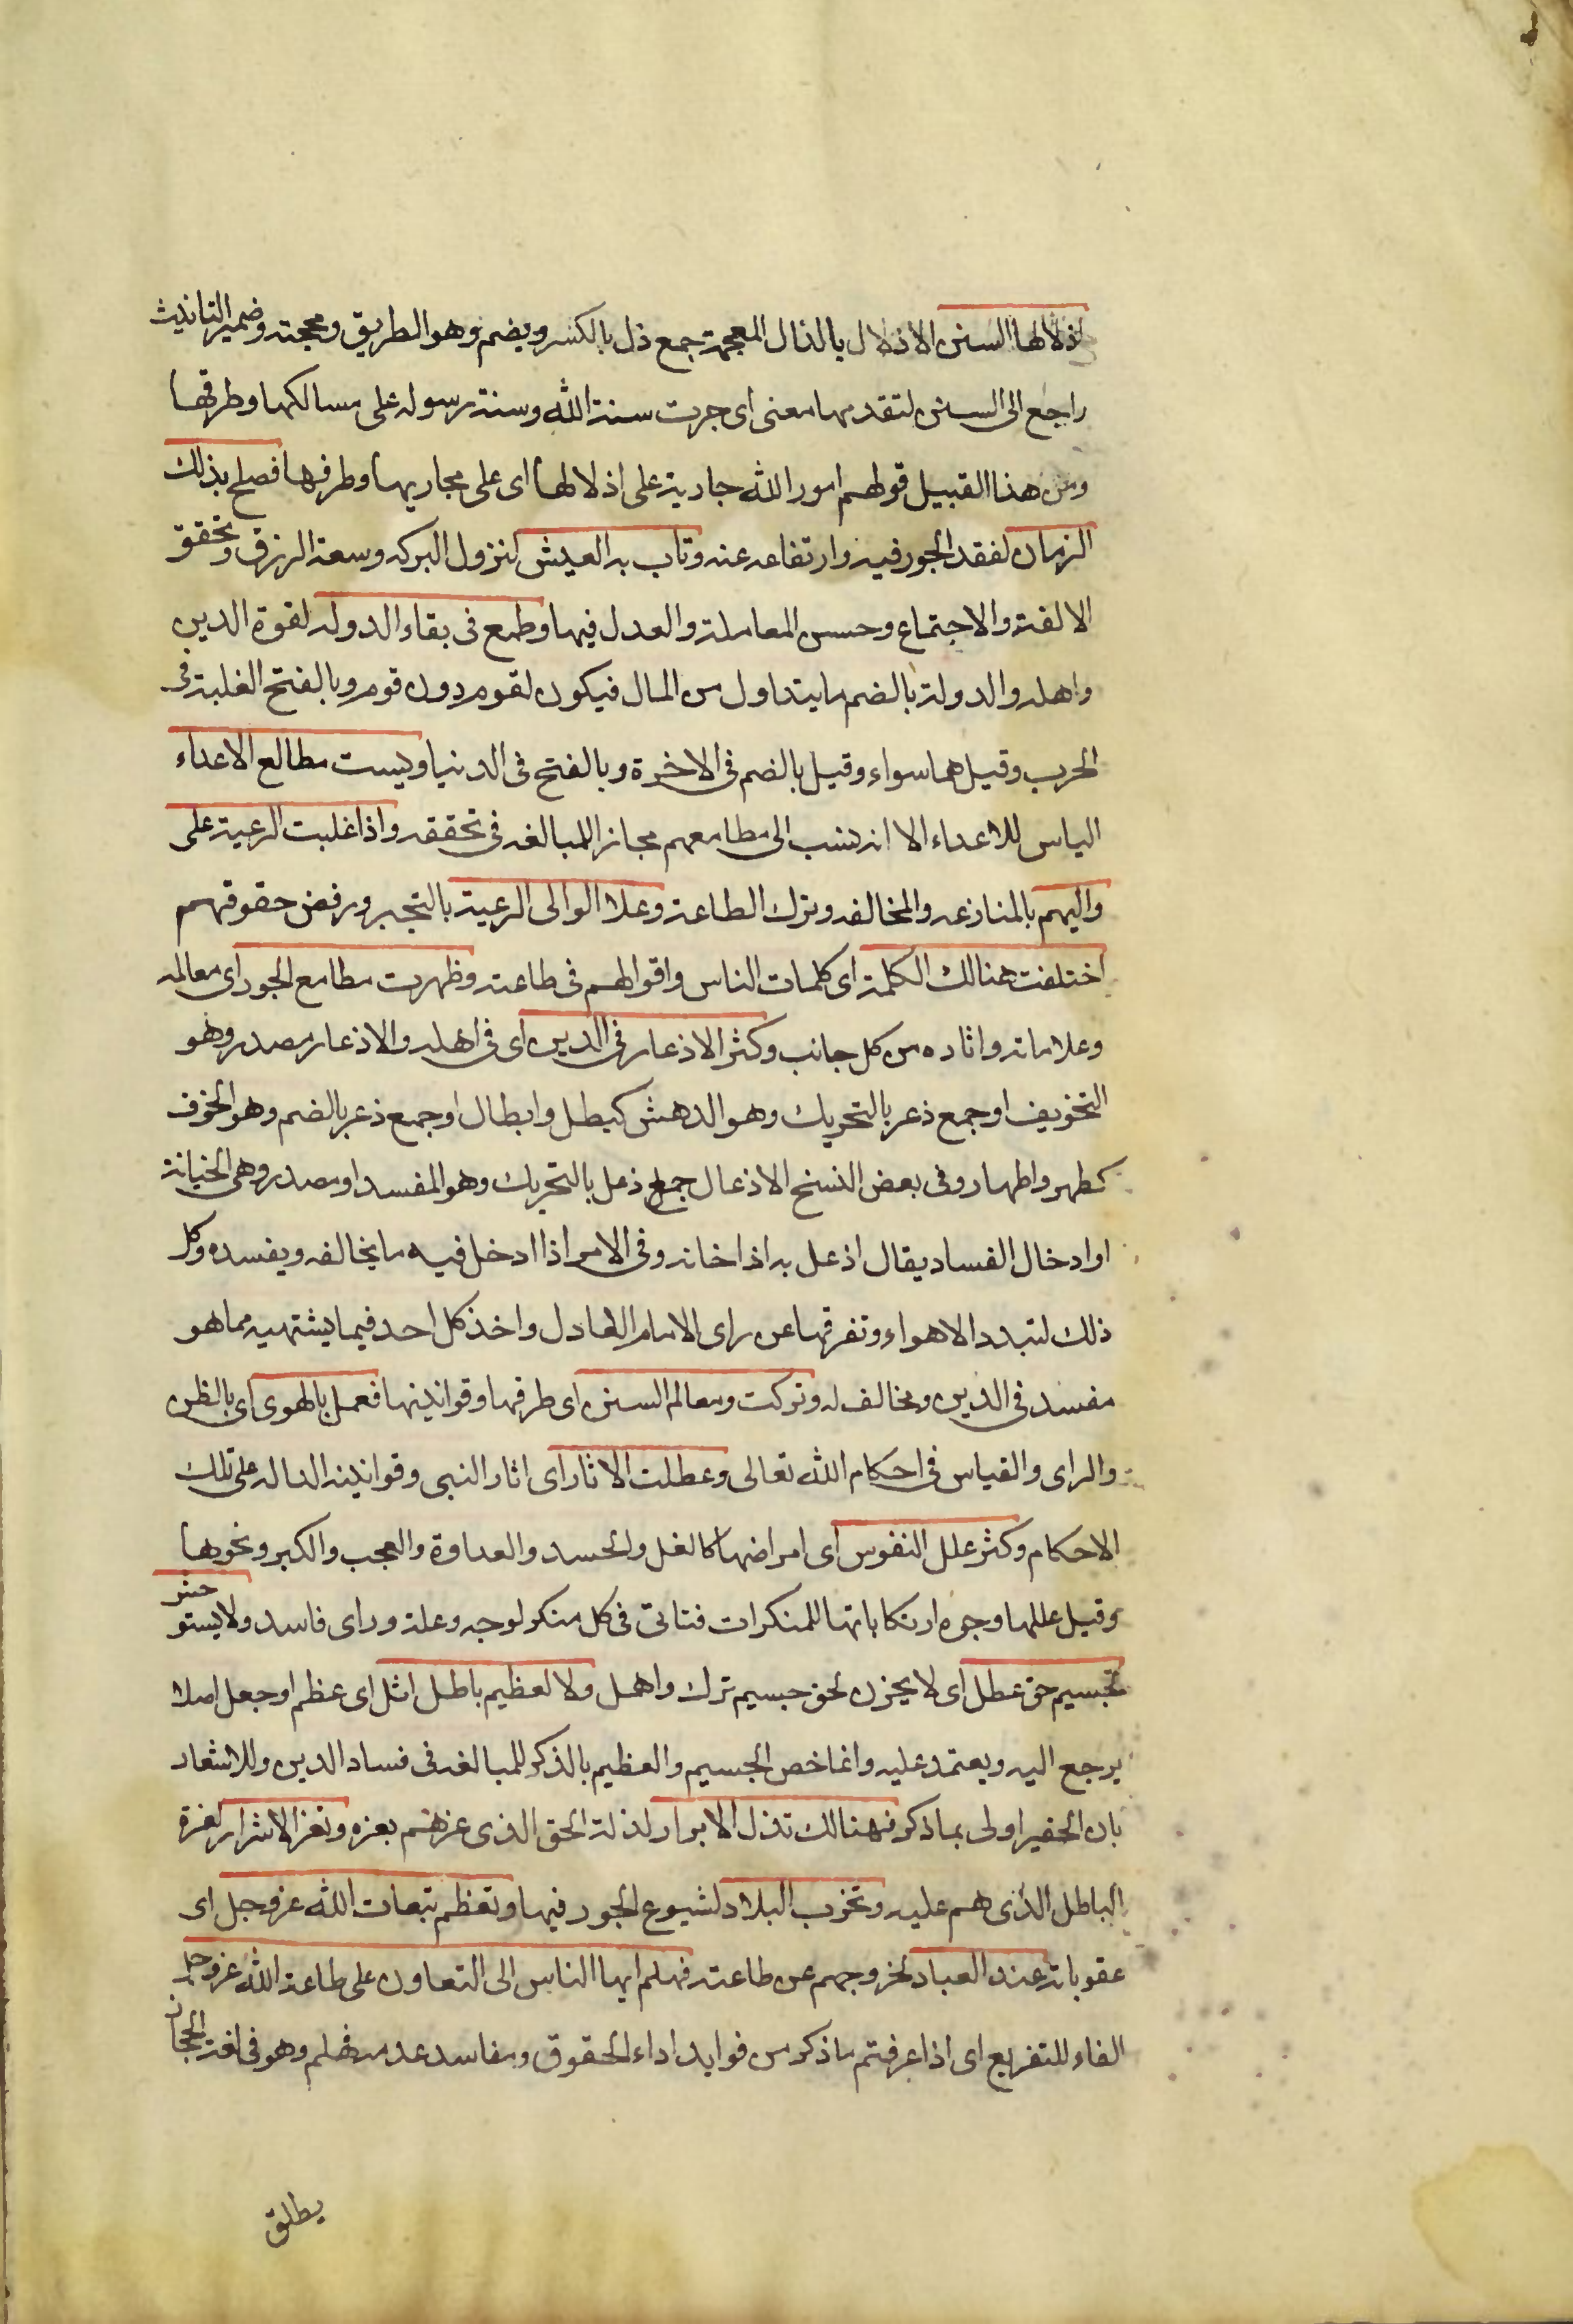 اذلالها السنن الاذلال بالذال المعجمة جمع ذل بالكسر ويضم وهو الطريق ومحجته وضمير التانيث
راجع الى السنن لتقدمها معنى اى جرت سنة الله وسنة رسوله على مسالكها وطرقها
ومن هذا القبيل قولهم امور الله جارية على اذلالها اى على مجاريها وطرقها فصلح بذلك
الزمان لفقد الجور فيه وارتفاعه عنه وتاب به العيش لنزول البركه وسعة الرزق وتحقق
الالفة والاجتماع وحسن المعاملة والعدل فيها وطمع فى بقاء الدوله لقوة الدين
واهله والدولة بالضم ما يتداول من المال فيكون لقوم دون قوم وبالفتح الغلبة فى
الحرب وقيل هما سواء وقيل بالضم فى الاخرة وبالفتح فى الدنيا ويست مطالع الاعداء
الياس للاعداء الا انه نسب الى مطامعهم مجازا للمبالغه فى تحققه واذا غلبت الرعية على
واليهم بالمنازعه والمخالفه وترك الطاعة وعلا الوالى الرعية بالتجبر ورفض حقوقهم
اختلفت هنالك الكلمة اى كلمات الناس واقوالهم فى طاعته وظهرت مطامع الجور اى معالمه
وعلاماته واثاره من كل جانب وكثر الاذعار فى الدين اى فى اهله والاذعار مصدر وهو
التخويف او جمع ذعر بالتحريك وهو الدهش كبطل وابطال او جمع ذعر بالضم وهو الخوف
كطهر واطهار وفى بعض النسخ الاذعال جمع ذعل بالتحريك وهو المفسد او مصدر وهى الخيانة
او ادخال الفساد يقال اذعل به اذا خانه وفى الامر اذا ادخل فيه ما يخالفه ويفسده وكل
ذلك لتبدد الاهواء وتفرقها عن راى الامام العادل واخذ كل احد فيما يشتهيه مما هو
مفسد فى الدين ومخالف له وتركت ومعالم السنن اى طرقها وقوانينها فعمل بالهوى اى بالظن
والراى والقياس فى احكام الله تعالى وعطلت الاثار اى اثار النبى وقوانينه الداله على تلك
الاحكام وكثر علل النفوس اى امراضها كالغل والحسد والعداوة والعجب والكبر ونحوها
وقيل عللها وجوه ارتكاباتها للمنكرات فتاتى فى كل منكر لوجه وعلة وراى فاسد ولا يستوحش
لجسيم حق عطل اى لا يحزن لحق جسيم ترك واهمل ولا لعظيم باطل اثل اى عظم او جعل اصلا
يرجع اليه ويعتمد عليه وانما خص الجسيم والعظيم بالذكر للمبالغه فى فساد الدين وللاشعار
بان الحقير اولى بما ذكر فهنالك تذل الابرار لذلة الحق الذى عزهم بعزه وتعز الاشرار لعزة
الباطل الذى هم عليه وتخرب البلاد لشيوع الجور فيها وتعظم تبعات الله عز وجل اى
عقوباته عند العباد لخروجهم عن طاعته فهلم ايها الناس الى التعاون على طاعة الله عز وجل
الفاء للتفريع اى اذا عرفتم ما ذكر من فوايد اداء الحقوق ومفاسد عدمه فهلم وهو فى لغة الحجاز
يطلق